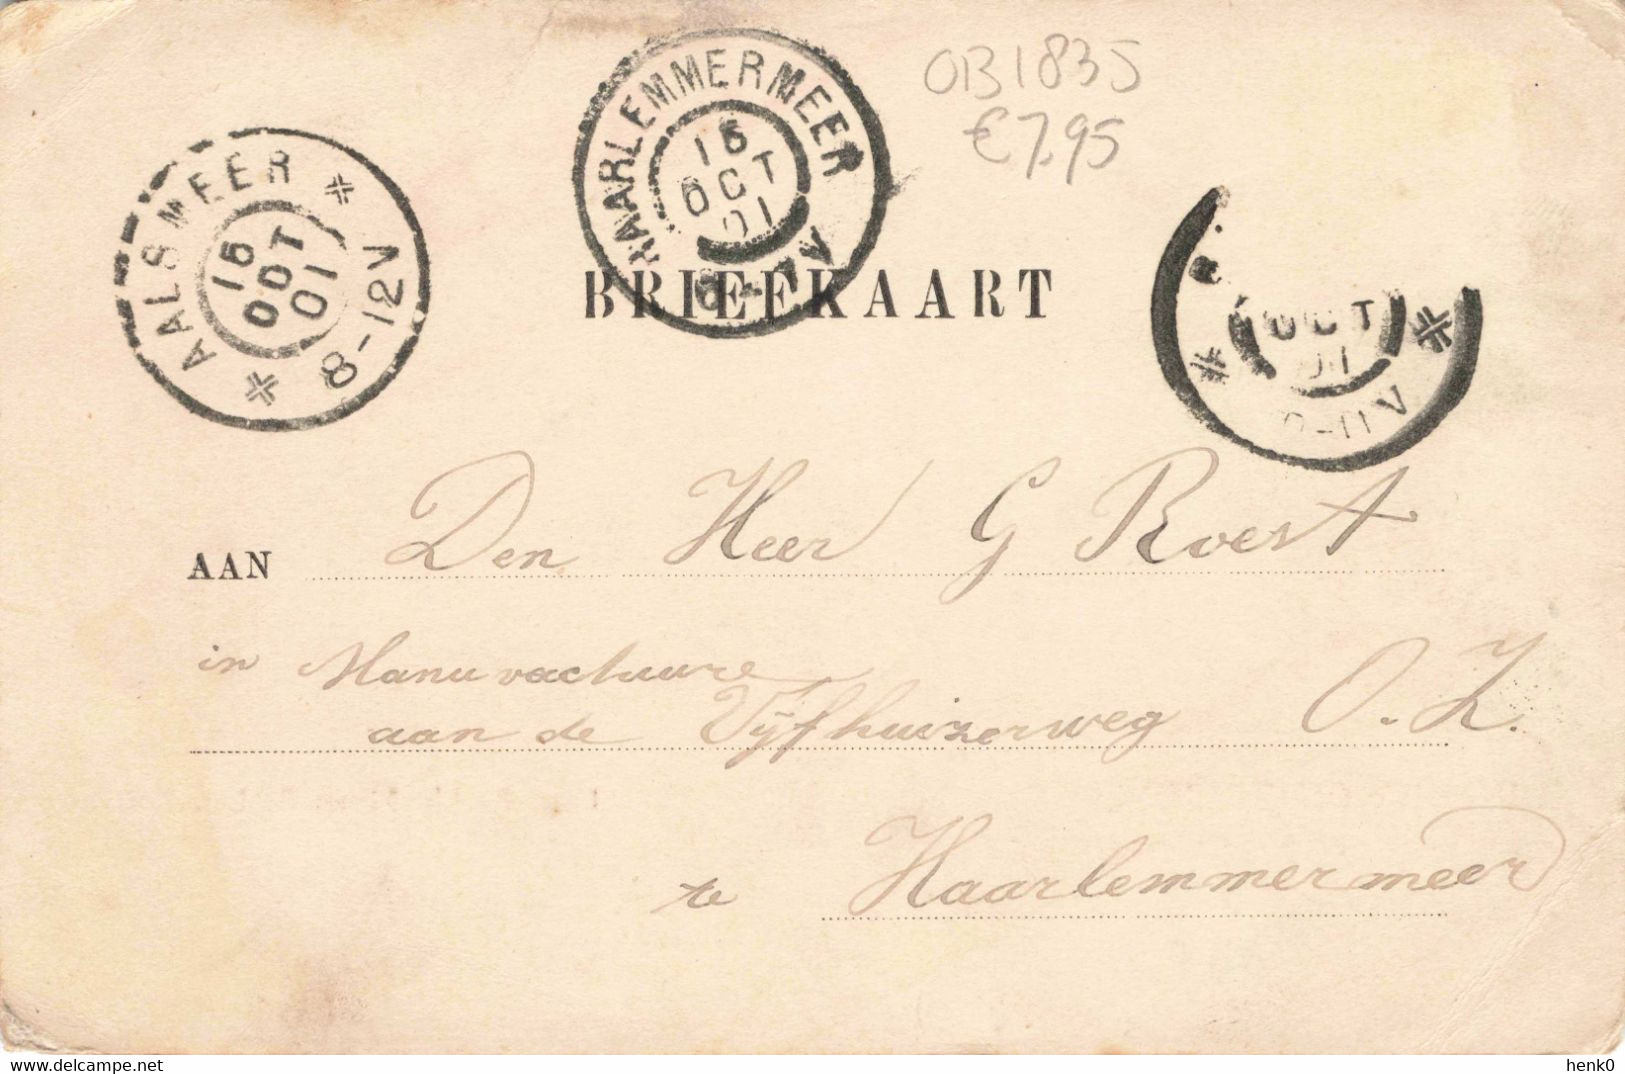 OB1835
€7.95
HAARLEMMERMEER
OCT
01
AALSMEER
OCT
01
8-12V
OCT
01
BRIEFKAART
AAN Den Heer G Roest
in Manuvactuure
aan de Vijfhuizerweg O.Z.
te Haarlemmermeer
delcampe.net
henk0